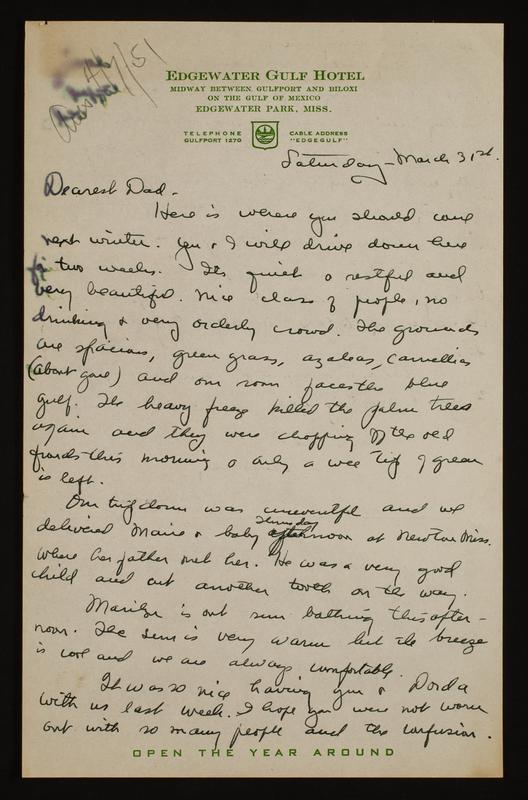 Ans 4/7/51
EDGEWATER GULF HOTEL
MIDWAY BETWEEN GULFPORT AND BILOXI
ON THE GULF OF MEXICO
EDGEWATER PARK, MISS.
TELEPHONE
GULFPORT 1270
CABLE ADDRESS
"EDGEGULF"
Saturday - March 31st.
Dearest Dad -
Here is where you should come
next winter. You & I will drive down here
for two weeks. Its quiet & restful and
very beautiful. Nice class of people, no
drinking & very orderly crowd. The grounds
are spacious, green grass, azaleas, camellias
(about gone) and our room faces the blue
gulf. The heavy freeze killed the palm trees
again and they were chopping off the old
fronds this morning & only a wee tip of green
is left.
Our trip down was uneventful and we
delivered & baby Thursday afternoon at Newton Miss.
where her father met her. He was a very good
child and cut another tooth on the way.
Marilyn is out sun bathing this after-
noon. The sun is very warm but the breeze
is cool and we are always comfortable.
It was so nice having you &
with us last week. I hope you were not worn
out with so many people and the confusion.
OPEN THE YEAR AROUND